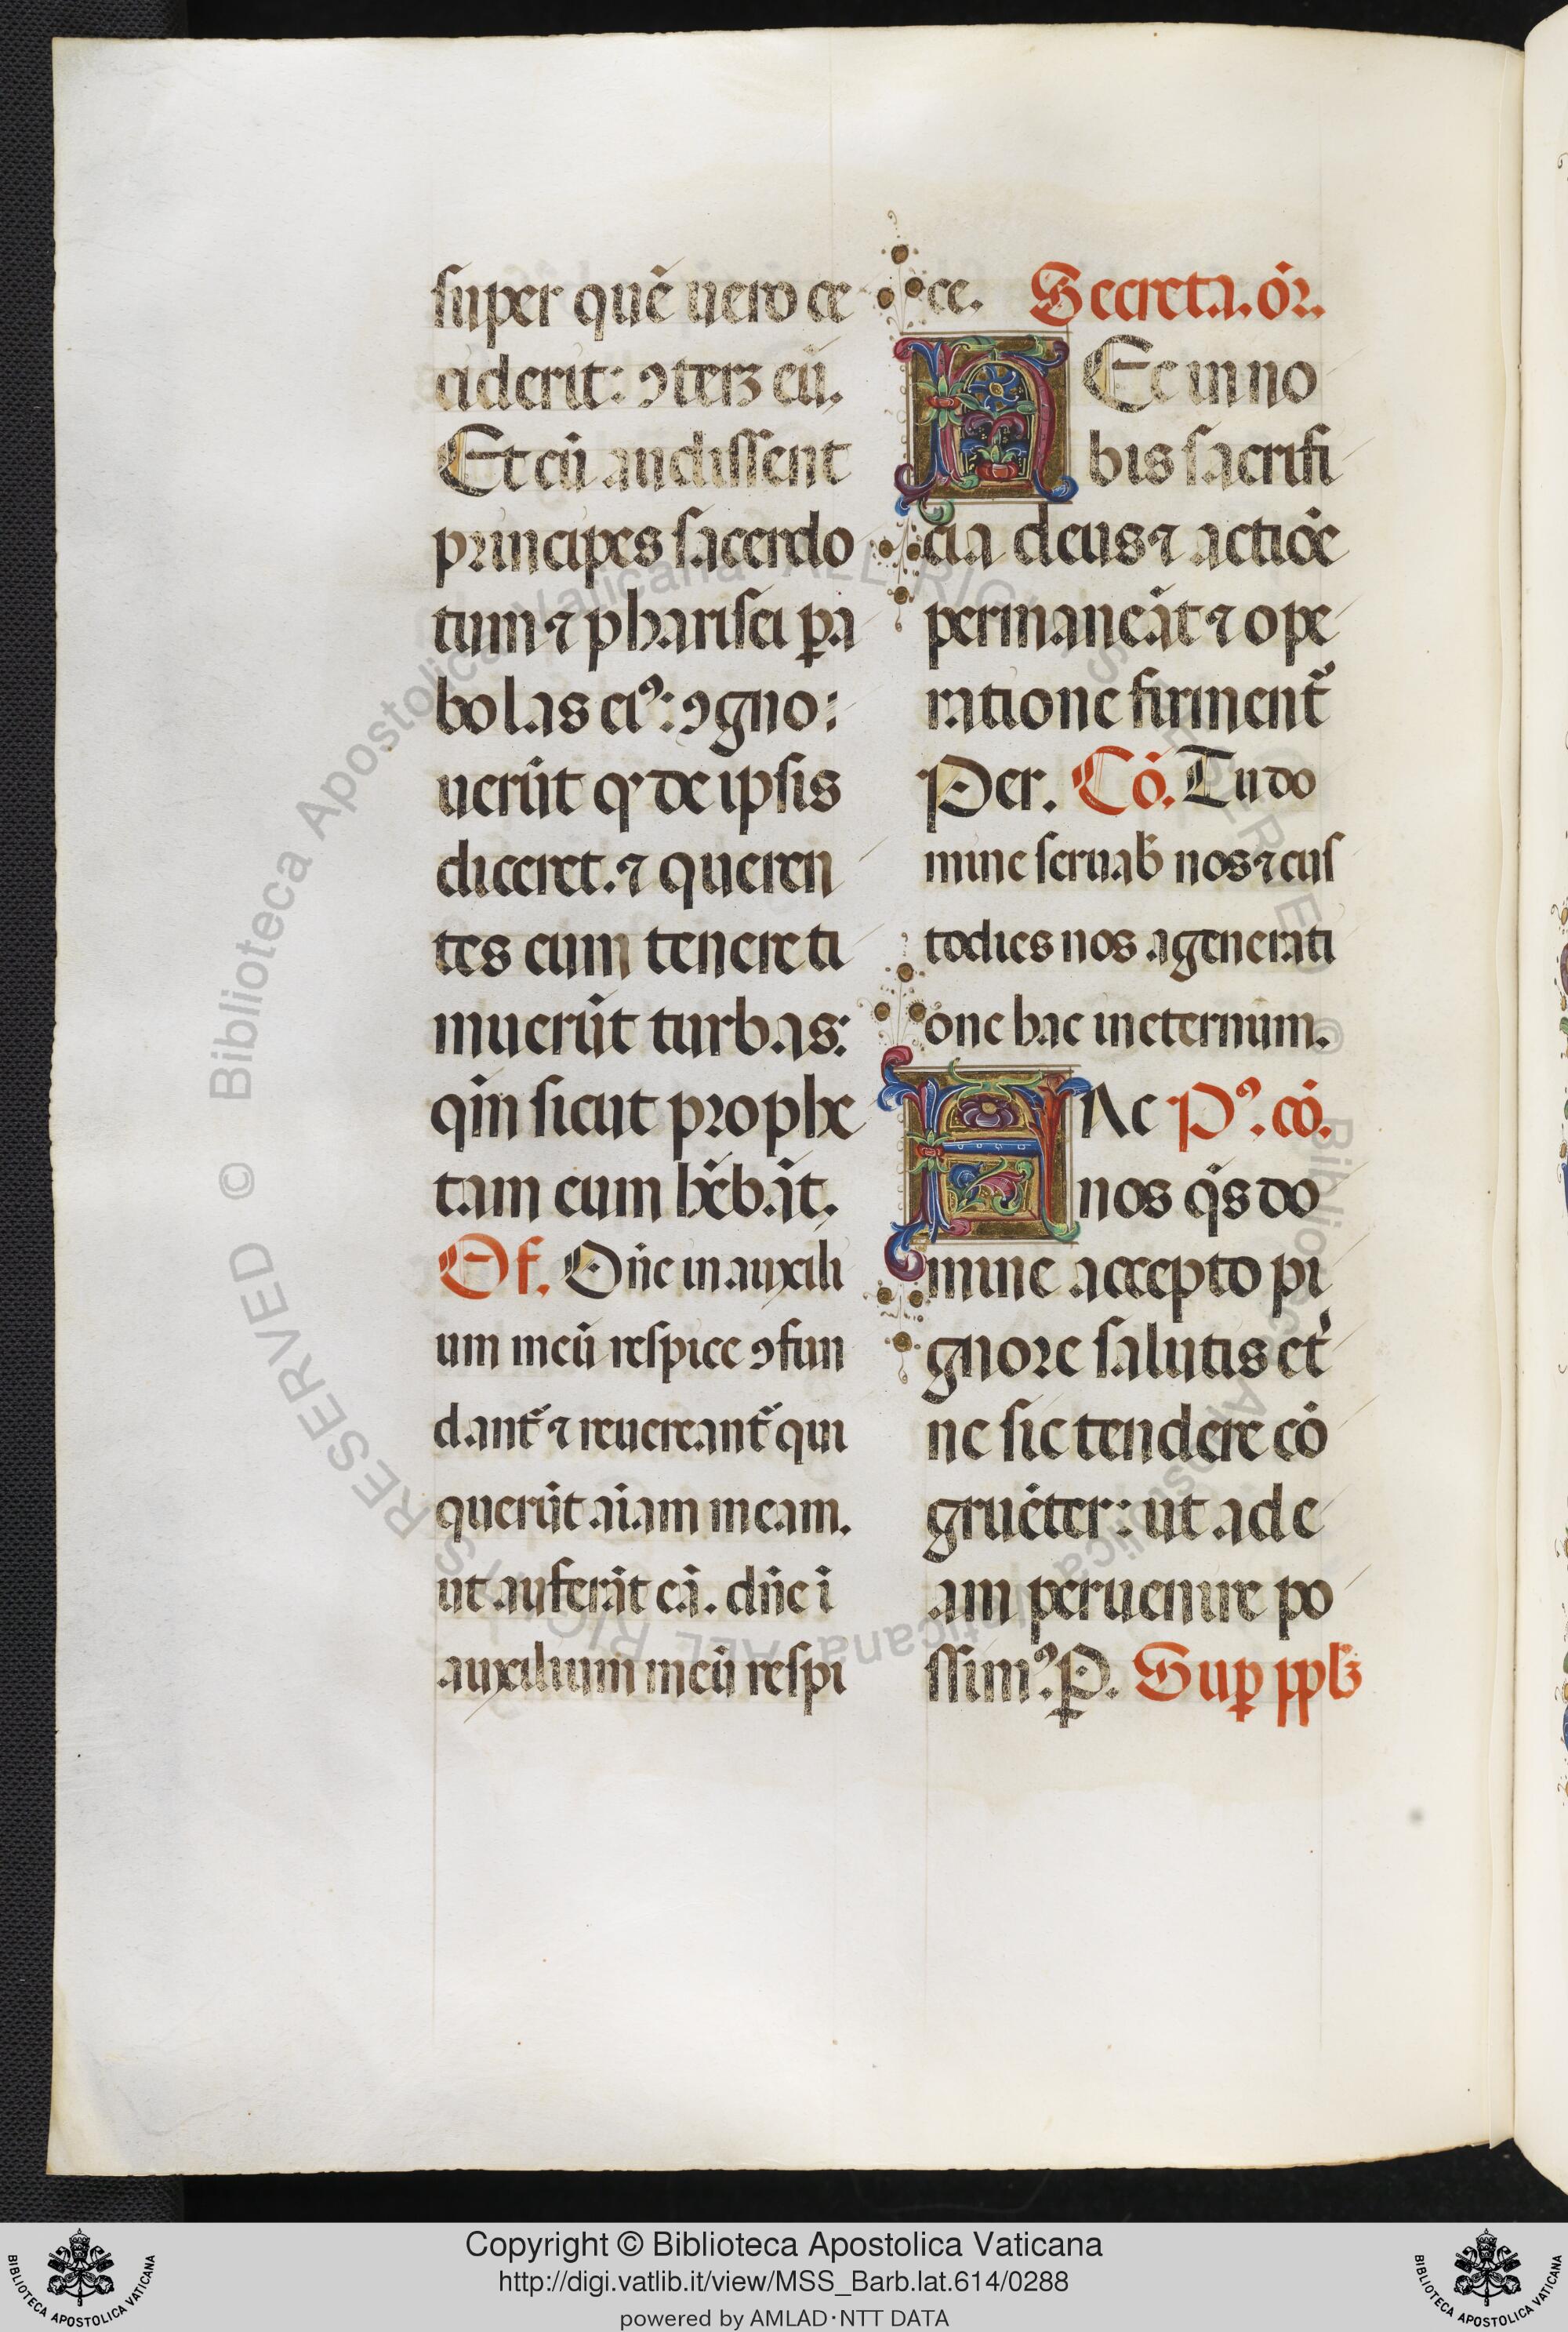 super quē uero ce
ciderit: ꝯterꝫ eū.
Et cū audissent
principes sacerdo
tum ⁊ pharisei ꝑa
bolas eiꝰ: ꝯgno:
uerūt ꝙ de ipsis
diceret. ⁊ queren
tes eum tenere ti
muerūt turbas:
qm̄ sicut prophe
tam eum hēbāt.
Of. Dn̄e in auxili
um meū respice ꝯfun
dant᷑ ⁊ reuereant᷑ qui
querūt aīam meam.
ut auferāt eā. dn̄e ī
auxilium meū respi
ce. Secreta. or̄.
HEc in no
bis sacrifi
cia deus ⁊ actiōe
permaneāt ⁊ ope
ratione firment᷑
Per. Cō. Tu do
mine seruab̄ nos ⁊ cus
todies nos a generati
one hac in eternum.
FAc Pꝰ. cō.
nos qs̄ do
mine accepto pi
gnore salutis et᷑
ne sic tendere cō
gruēter: ut ad e
am peruenire po
ssimꝰ. P. Suꝑ pplꝫ
Copyright © Biblioteca Apostolica Vaticana
http://digi.vatlib.it/view/MSS_Barb.lat.614/0288
powered by AMLAD·NTT DATA
BIBLIOTECA APOSTOLICA VATICANA
BIBLIOTECA APOSTOLICA VATICANA
© Biblioteca Apostolica Vaticana ALL RIGHTS RESERVED